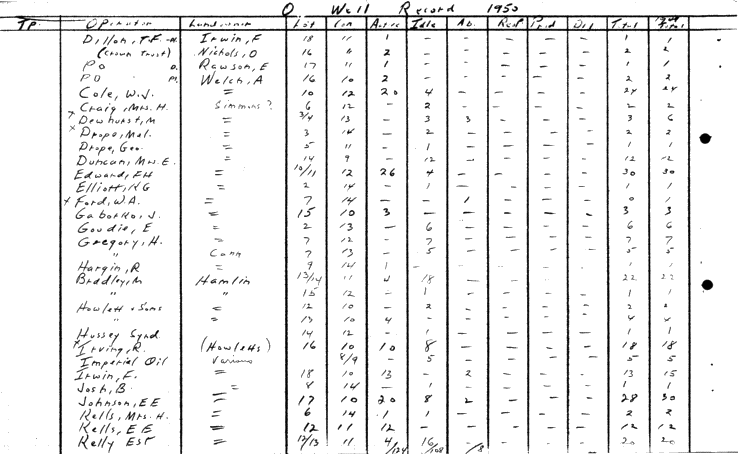 O Well Record 1950
TP. Operator Landowner Lot Con Active Idle Ab. Prod Dry Total Total
Dillon, T.F. Irwin, F 18 11 1 - - - - - 1 1
(Crown Trust) Nichols, O 16 " 2 - - - - - 2 2
PO Rawson, E 17 11 1 - - - - - 1 1
PO Welch, A 16 10 2 - - - - - 2 2
Cole, W.J. = 10 12 20 4 - - - - 24 24
Craig, Mrs. H. Simmons? 6 12 - 2 - - - - 2 2
x Dewhurst, M = 3/4 13 - 3 3 - - - 3 6
x Drope, Mel. = 3 14 - 2 - - - - 2 2
Drope, Geo. = 5 11 - 1 - - - - 1 1
Duncan, Mrs. E. = 14 9 - 12 - - - - 12 12
Edward, FH = 10/11 12 26 4 - - - - 30 30
Elliott, KG = 2 14 - 1 - - - - 1 1
x Ford, W.A. = 7 14 - - 1 - - - 0 1
Gaborko, J. = 15 10 3 - - - - - 3 3
Goudie, E = 2 13 - 6 - - - - 6 6
Gregory, H. = 7 12 - 7 - - - - 7 7
" Conn 7 13 - 5 - - - - 5 5
Hargin, R = 9 14 1 - - - - 1 1
Bradley, M Hamlin 13/14 11 4 18 - - - - 22 22
" " 15 12 - 1 - - - - 1 1
Howlett & Sons = 12 10 - 2 - - - - 2 2
" = 13 10 4 - - - - - 4 4
Hussey Synd. = 14 12 - 1 - - - - 1 1
x Irving, R. (Howletts) 16 10 10 8 - - - - 18 18
Imperial Oil Various 8/9 - 5 - - - - 5 5
Irwin, F. = 18 10 13 - 2 - - - 13 15
Josh, B. = 8 14 - 1 - - - - 1 1
Johnson, EE = 17 10 20 8 2 - - - 28 30
Kells, Mrs. H. = 6 14 1 1 - - - - 2 2
Kells, EE = 12 11 12 - - - - - 12 12
Kelly Est = 12/13 11 4/124 16/108 -/8 - - - 20 20